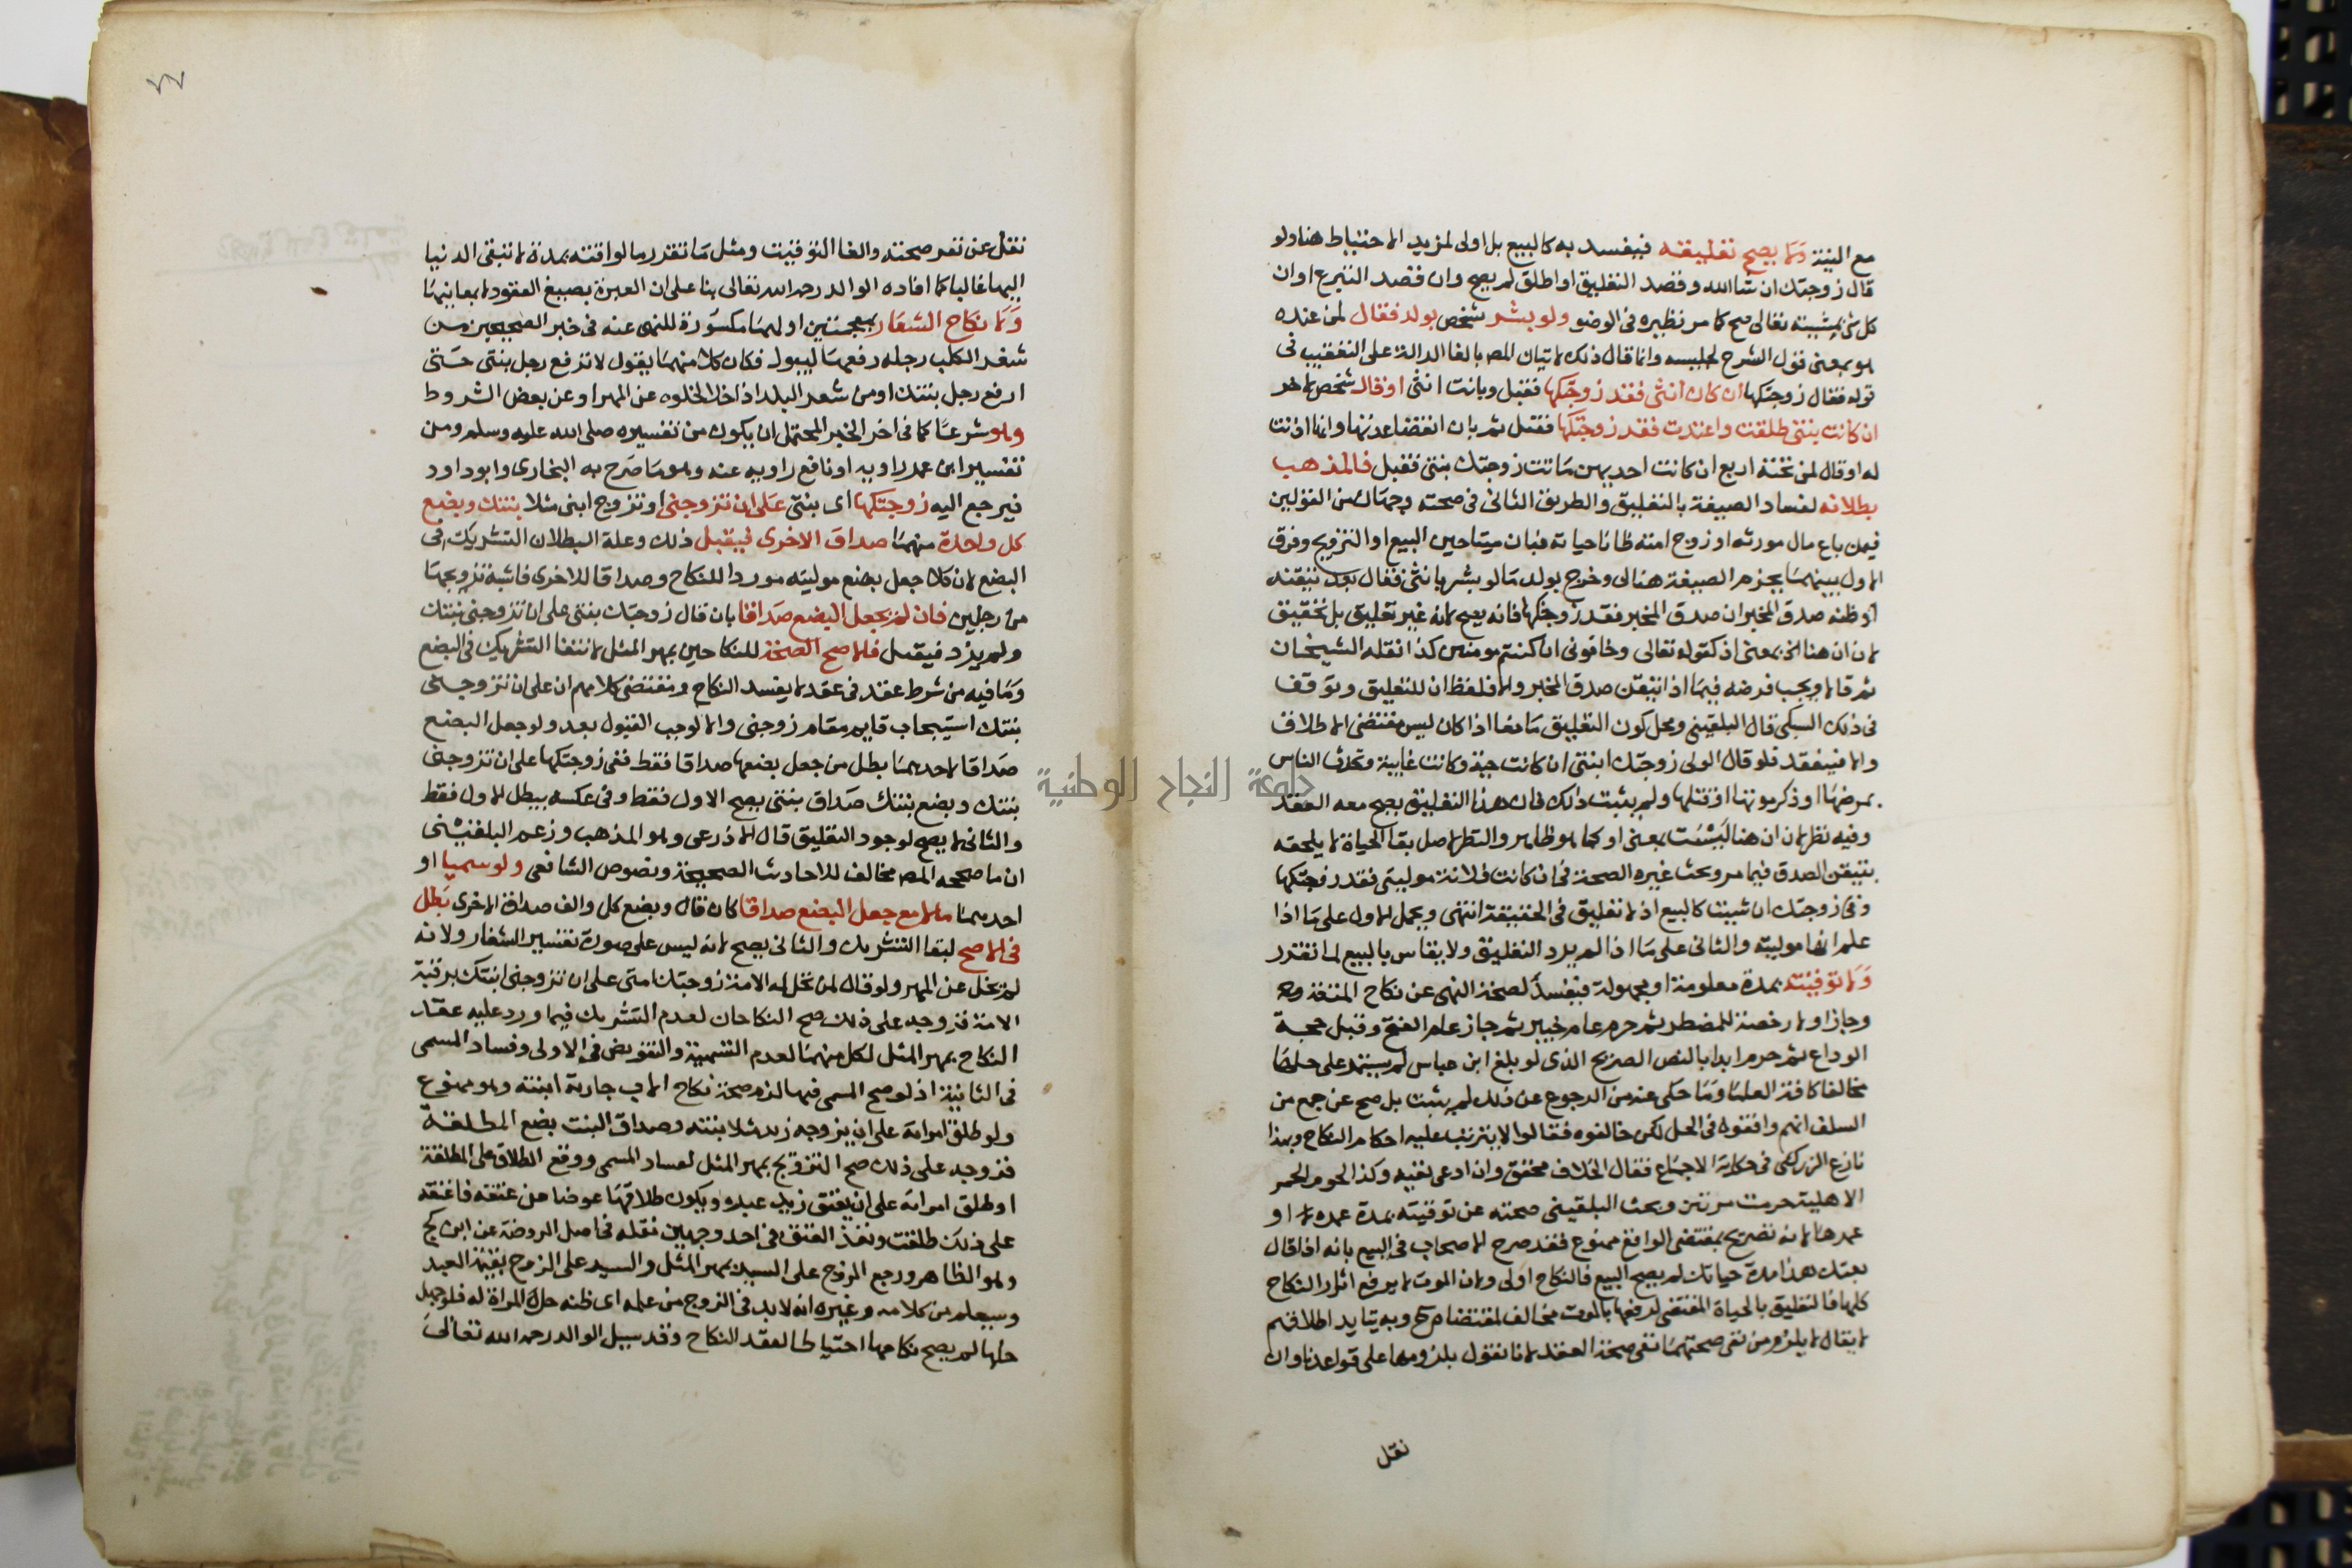 مع النية ولا يصح تعليقه فيفسد به كالبيع بل اولى لمزيد الاحتياط هنا ولو
قال زوجتك ان شا الله وقصد التعليق او اطلق لم يصح وان قصد التبرع او ان
كل شي بمشيته تعالى صح كما مر نظيره في الوضو ولو بشر شخص بولد فقال لمن عنده
هو بمعنى قول الشرح لجليسه وانما قال ذلك لاتيان المص بالفا الدالة على التعقيب في
قوله فقال زوجتكها ان كان انثى فقد زوجتكها فقبل وبانت انثى او قال شخص لاخر
ان كانت بنتي طلقت واعتدت فقد زوجتكها فقبل ثم بان انقضا عدتها وانها اذنت
له او قال لمن تحته اربع ان كانت احديهن ماتت زوجتك بنتي فقبل فالمذهب
بطلانه لفساد الصيغة بالتعليق والطريق الثاني في صحته وجهان من القولين
فيمن باع مال مورثه او زوج امته ظانا حياته فبان ميتا حين البيع او التزويج وفرق
الاول بينهما بجزم الصيغة هنالك وخرج بولد ما لو بشر بانثى فقال بعد تيقنه
او ظنه صدق المخبر ان صدق المخبر فقد زوجتكها فانه يصح لانه غير تعليق بل تحقيق
لان ان هنا بمعنى اذ كقوله تعالى وخافوني ان كنتم مومنين كذا نقله الشيخان
ثم قالا ويجب فرضه فيما اذا تيقن صدق المخبر والا فلفظ ان للتعليق وتوقف
في ذلك السبكي قال البلقيني ومحل كون التعليق مانعا اذا كان ليس مقتضى الاطلاق
والا فينعقد فلو قال الولي زوجتك ابنتي ان كانت حية وكانت غايبة وتحدث الناس
بمرضها او ذكر موتها او قتلها ولم يثبت ذلك فان هذا التعليق يصح معه العقد
وفيه نظر لان ان هنا ليست بمعنى اذ كما هو ظاهر والنظر لاصل بقا الحياة لا يلحقه
بتيقن الصدق فيما مر وبحث غيره الصحة في ان كانت فلانة موليتي فقد زوجتكها
وفي زوجتك ان شيت كالبيع اذ لا تعليق في الحقيقة انتهى ويحمل الاول على ما اذا
علم انها موليته والثاني على ما اذا لم يرد التعليق ولا يقاس بالبيع لما تقرر
ولا توقيته بمدة معلومة او مجهولة فيفسد لصحة النهي عن نكاح المتعة وهو
وجاز اولا رخصة للمضطر ثم حرم عام خيبر ثم جاز عام الفتح وقبل حجة
الوداع ثم حرم ابدا بالنص الصريح الذي لو بلغ ابن عباس لم يستمر على حلها
مخالفا كافة العلما وما حكى عنه من الرجوع عن ذلك لم يثبت بل صح عن جمع من
السلف انهم وافقوه في الحل لكن خالفوه فقالوا لا يترتب عليه احكام النكاح وبهذا
نازع الزركشي في حكاية الاجماع فقال الخلاف محقق وان ادعى نفيه وكذا لحوم الحمر
الاهلية حرمت مرتين وبحث البلقيني صحته عن توقيته بمدة عمره لا او
عمرها لانه تصريح بمقتضى الواقع ممنوع فقد صرح الاصحاب في البيع بانه اذا قال
بعتك هذا مدة حياتك لم يصح البيع فالنكاح اولى ولان الموت لا يرفع اثار النكاح
كلها فالتعليق بالحياة المقتضي لرفعها بالموت مخالف لمقتضاه وبه يتايد اطلاقهم
لا يقال لا يلزم من نفي صحتهما نفي صحة العقد لانا نقول بلزومها على قواعدنا وان
نقل
نقل عن نفر صحته والغا التوقيت ومثل ما تقرر ما لو اقته بمدة لا تبقى الدنيا
اليها غالبا كما افاده الوالد رحمه الله تعالى بنا على ان العبرة بصيغ العقود لا بمعانيها
ولا نكاح الشغار بمعجمتين اولهما مكسورة للنهي عنه في خبر الصحيحين من
شغر الكلب رجله رفعها ليبول فكان كلا منهما يقول لا ترفع رجل بنتي حتى
ارفع رجل بنتك او من شغر البلد اذا خلا لخلوه عن المهر او عن بعض الشروط
وهو شرعا كما في اخر الخبر المحتمل ان يكون من تفسيره صلى الله عليه وسلم ومن
تفسير ابن عمر راويه او نافع راويه عنه وهو ما صرح به البخاري وابو داود
فيرجع اليه زوجتكها اي بنتي على ان تزوجني او تزوج ابني مثلا بنتك وبضع
كل واحدة منهما صداق الاخرى فيقبل ذلك وعلة البطلان التشريك في
البضع لان كلا جعل بضع موليته موردا للنكاح وصداقا للاخرى فاشبه تزويجها
من رجلين فان لم يجعل البضع صداقا بان قال زوجتك بنتي على ان تزوجني بنتك
ولم يزد فيقبل فالاصح الصحة للنكاحين بمهر المثل لانتفا التشريك في البضع
وما فيه من شرط عقد في عقد لا يفسد النكاح ومقتضى كلامهم ان على ان تزوجني
بنتك استيجاب قايم مقام زوجني والا لوجب القبول بعد ولو جعل البضع
صداقا لاحدهما بطل من جعل بضعها صداقا فقط ففي زوجتكها على ان تزوجني
بنتك وبضع بنتك صداق بنتي يصح الاول فقط وفي عكسه يبطل الاول فقط
والثاني لا يصح لوجود التعليق قال الاذرعي وهو المذهب وزعم البلقيني
ان ما صححه المص مخالف للاحاديث الصحيحة ونصوص الشافعي ولو سميا او
احدهما مالا مع جعل البضع صداقا كان قال وبضع كل والف صداق الاخرى بطل
في الاصح لبقا التشريك والثاني يصح لانه ليس على صورة تفسير الشغار ولانه
لم يخل عن المهر ولو قال لمن تحل له الامة زوجتك امتي على ان تزوجني ابنتك برقبة
الامة فزوجه على ذلك صح النكاحان لعدم التشريك فيما ورد عليه عقد
النكاح بمهر المثل لكل منهما لعدم التسمية والتفويض في الاولى وفساد المسمى
في الثانية اذ لو صح المسمى فيها لزم صحة نكاح الاب جارية ابنته وهو ممنوع
ولو طلق امراته على ان يزوجه زيد مثلا بنته وصداق البنت بضع المطلقة
فزوجه على ذلك صح التزويج بمهر المثل لفساد المسمى ووقع الطلاق على المطلقة
او طلق امراته على ان يعتق زيد عبده ويكون طلاقها عوضا عن عتقه فاعتقه
على ذلك طلقت ونفذ العتق في احد وجهين نقله في اصل الروضة عن ابن كج
وهو الظاهر ورجع الزوج على السيد بمهر المثل والسيد على الزوج بقيمة العبد
وسيعلم من كلامه وغيره انه لا بد في الزوج من علمه اي ظنه حل المراة له فلو جهل
حلها لم يصح نكاحها احتياطا لعقد النكاح وقد سيل الوالد رحمه الله تعالى
جامعة النجاح الوطنية